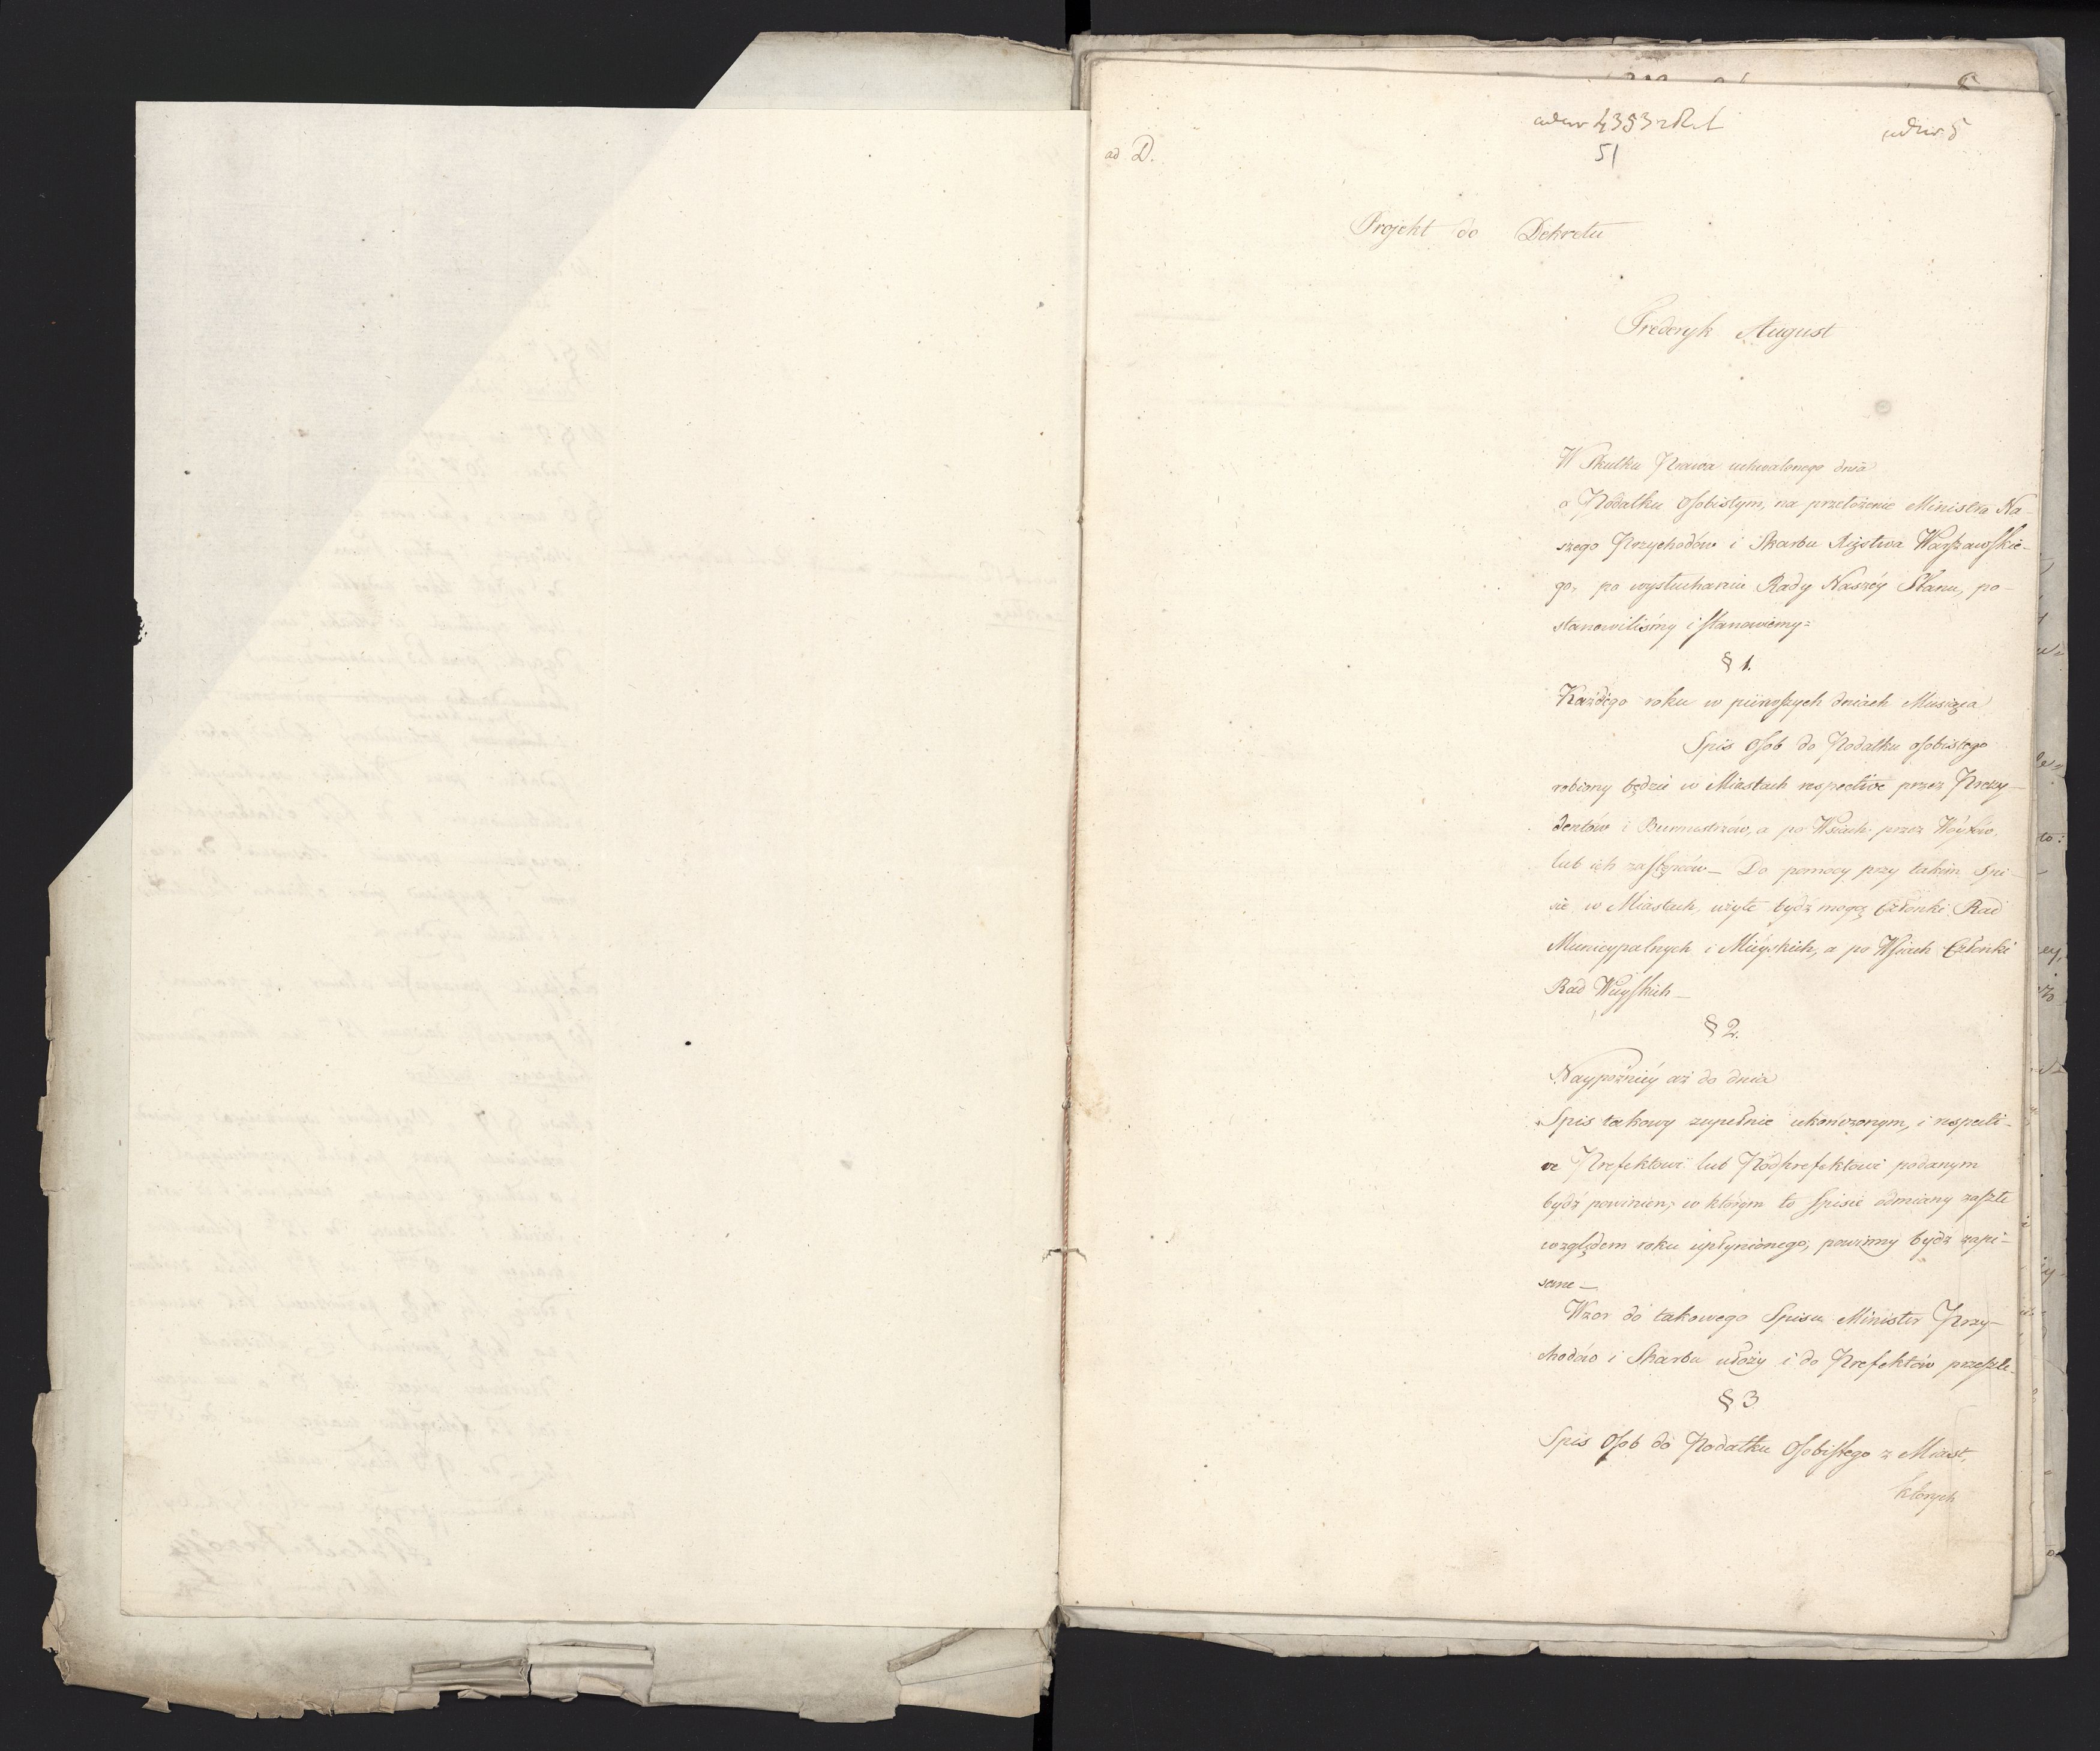 ad D.
51
Projekt do Dekretu
Frederyk August
W Skutku Prawa uchwalonego dnia
o Podatku Osobistym, na przełożenie Ministra Na-
szego Przychodów i Skarbu Xięstwa Warszawskie-
go, po wysłuchaniu Rady Naszéy Stanu, po-
stanowiliśmy i stanowiemy=
§ 1.
Każdégo roku w piérwszych dniach Miesiąca
Spis Osob do Podatku osobistego
robiony będzie w Miastach respective przez Prezy-
dentów i Burmistrzów, a po Wsiach przez Wóytów,
lub ich zastępców_ Do pomocy przy takim Spi-
sie w Miastach, użyte bydź mogą Członki Rad
Municypalnych i Mieyskich, a po Wsiach Członki
Rad Wieyskich_
§ 2.
Naypóżniéy aż do dnia
Spis takowy zupełnie ukończonym, i respecti-
ve Prefektowi lub Podprefektowi podanym
bydź powinien; w którym to spisie odmiany zaszłe
względem roku upłynionego, powinny bydź zapi-
sane_
Wzor do takowego Spisu Minister Przy-
chodów i Skarbu ułoży i do Prefektów prześle_
§ 3
Spis Osob do Podatku Osobistego z Miast,
których